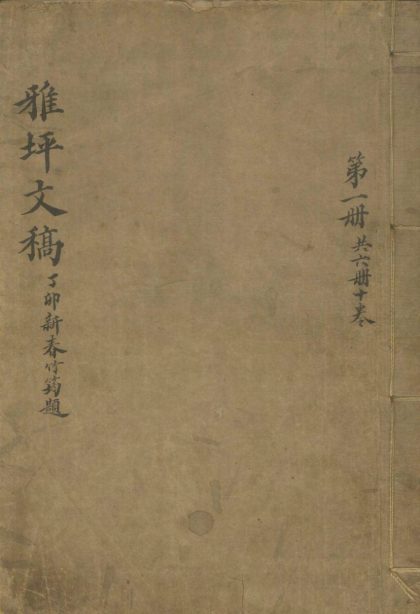 第一册 共六册十卷
雅坪文稿 丁卯新春竹筠題